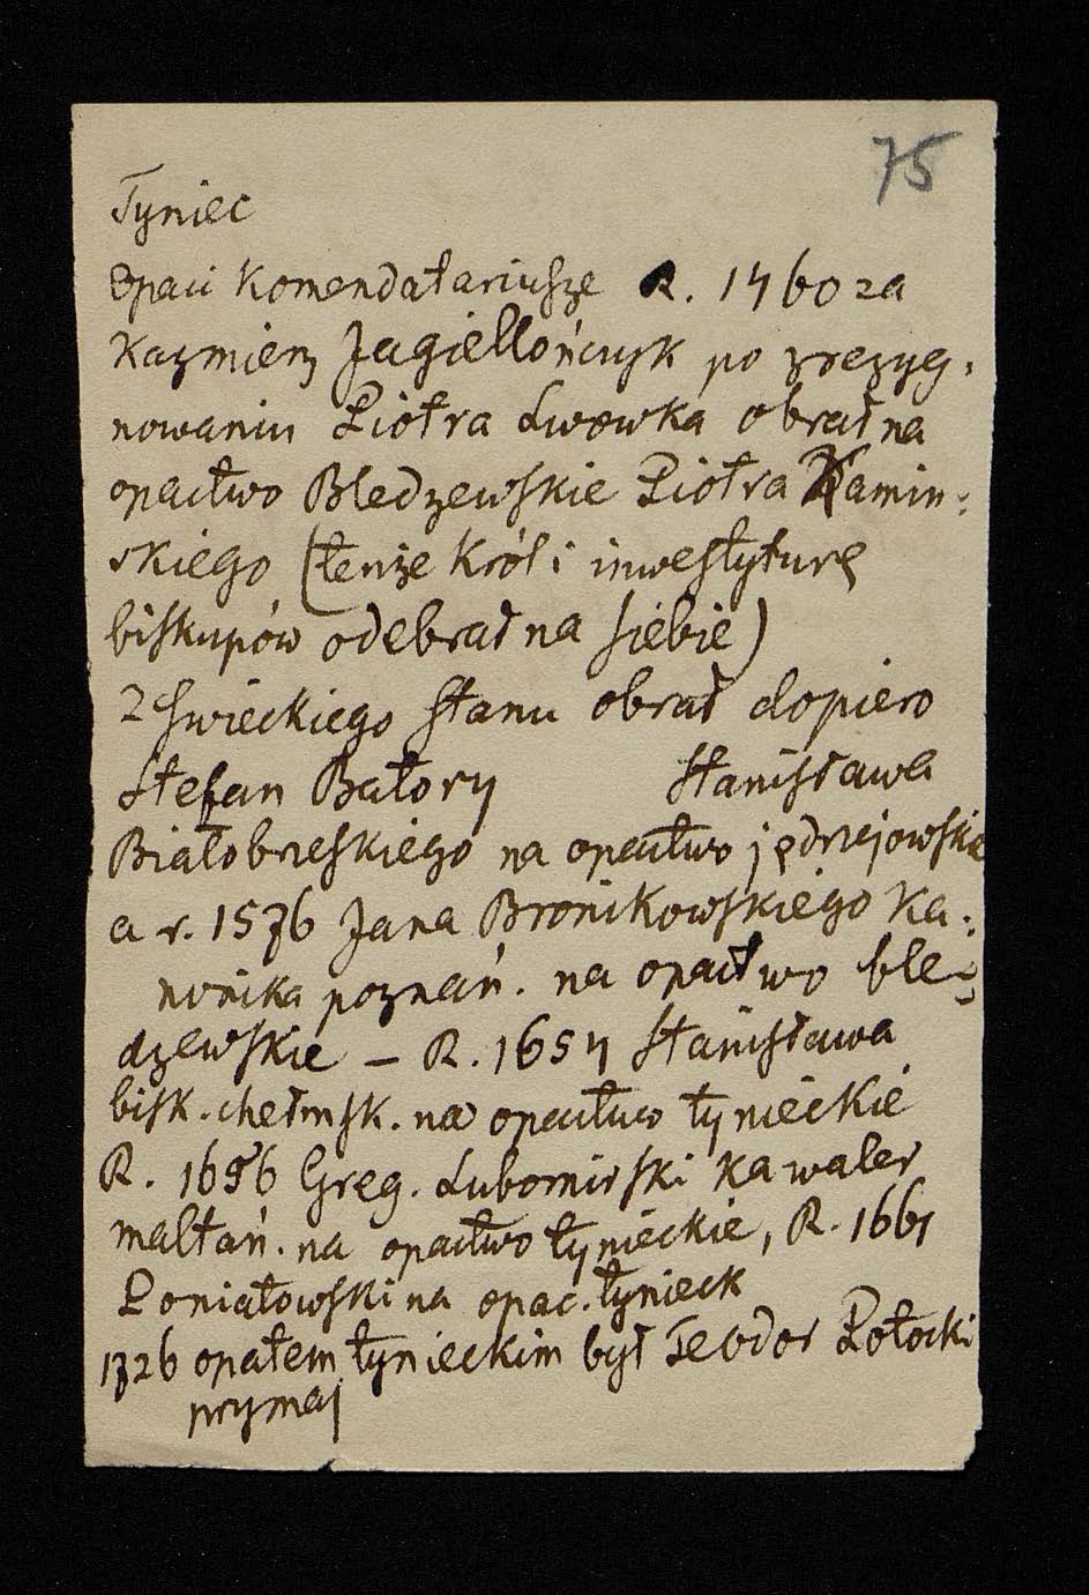 75
Tyniec
Opaci Komendatariusze R. 1460 za
Kazmierz Jagiellończyk po zrezyg-
nowaniu Piotra Lwowka obrał na
opactwo Bledzewskie Piotra Kamin-
skiego (tenże Król i inwestyturę
biskupów odebrał na siebie)
Z swieckiego stanu obrał dopiero
Stefan Batory Stanisława
Białobrzeskiego na opactwo jędrzejowskie
a r. 1576 Jana Bronikowskiego Ka-
nonika poznań. na opactwo ble-
dzewskie – R. 1654 Stanisława
bisk. chełmsk. na opactwo tynieckie
R. 1656 Greg. Lubomirski kawaler
maltań. na opactwo tynieckie, R. 1661
Poniatowski na opac. tynieck
1726 opatem tynieckim był Teodor Potocki
prymas